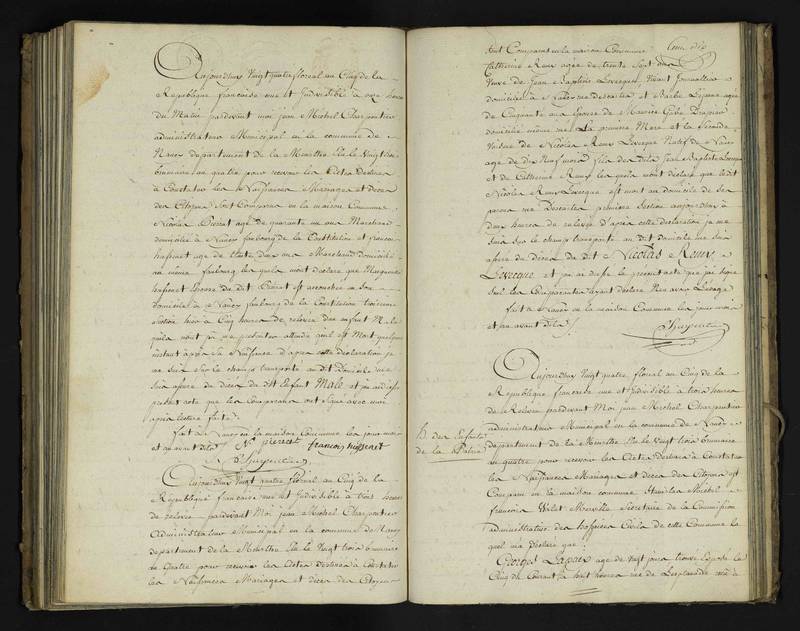 Aujourd'hui Vingt quatre floreal an Cinq de la
Republique française une et Indivisible à onze heures
du Matin pardevant moi jean Michel Charpentier
administrateur Municipal en la commune de
Nancy departement de la Meurthe Elu le Vingt trois
brumaire an quatre pour recevoir les Actes Destinés
à Constater les Naissances Mariages et deces
des Citoyens Sont Comparus en la maison Commune
Nicolas Pierret agé de quarante un ans Marchand
domicilié à Nancy faubourg de la Constitution et françois
husenet agé de trente deux ans Marchand domicilié
au même faubourg les quels m'ont declaré que Marguerite
husenet Epouse du dit Pierret est accouchée en Son
domicile à Nancy faubourg de la Constitution troisieme
section hier à Cinq heures de relevée d'un enfant Male
qu'ils n'ont pu me presenter attendu qu'il est Mort quelques
instant après Sa Naissance d'après cette declaration je
me suis sur le champ transporté au dit Domicile me
Suis assuré du deces du dit Enfant Male et j'ai dressé
present acte que les Comparans ont signé avec moi
après lecture faite.
fait à Nancy en la maison Commune les jour mois
et an avant dits N. pierret françois husenet
Charpentier
Aujourd'hui Vingt quatre floreal an Cinq de la
Republique française une et Indivisible à trois heures
de relevée pardevant Moi jean Michel Charpentier
Administrateur Municipal en la commune de Nancy
departement de la Meurthe Elu le Vingt trois brumaire
an Quatre pour recevoir les Actes Destinés à Constater
les Naissances Mariages et deces des Citoyens
Sont Comparus en la maison Commune Cent dix
Catherine Roux agée de trente Sept ans
Veuve de Jean Baptiste Leveque Vivant journallier
domiciliée à Nancy rue descartes et Barbe agée
de Cinquante ans Epouse de Maurice
domiciliée même rue la premiere Mere et la Seconde
Voisine de Nicolas Roux Leveque Natif de Nancy
agé de dix Neuf mois fils de deffunt Jean Baptiste Leveque
et de Catherine Roux les quelles m'ont declaré que le dit
Nicolas Roux Leveque est mort au domicile de Sa
mere rue Descartes premiere Section aujourd'hui à
deux heures de relevée d'après cette declaration je me
Suis Sur le champ transporté au dit domicile me suis
assuré du deces du dit Nicolas Roux
Leveque et j'ai dressé le present acte que j'ai signé
Seul les Comparantes ayant declaré N'en avoir l'usage
fait à Nancy en la maison Commune les jour mois
et an avant dits
Charpentier
Aujourd'hui Vingt quatre floreal an Cinq de la
Republique française une et Indivisible à trois heures
de Relevée pardevant Moi jean Michel Charpentier
administrateur Municipal en la commune de Nancy
departement de la Meurthe Elu le Vingt trois brumaire
an quatre pour recevoir les Actes Destinés à Constater
les Naissances Mariages et deces des Citoyens est
Comparu en la maison commune Stanislas Michel
françois Secretaire de la Commission
administrative des hospices Civils de cette Commune le
quel m'a declaré que
Georges agé de Vingt jours trouvé Exposé le
Cinq du Courant à huit heures rue de l'esplanade coté à
h. des Enfants
de la Patrie